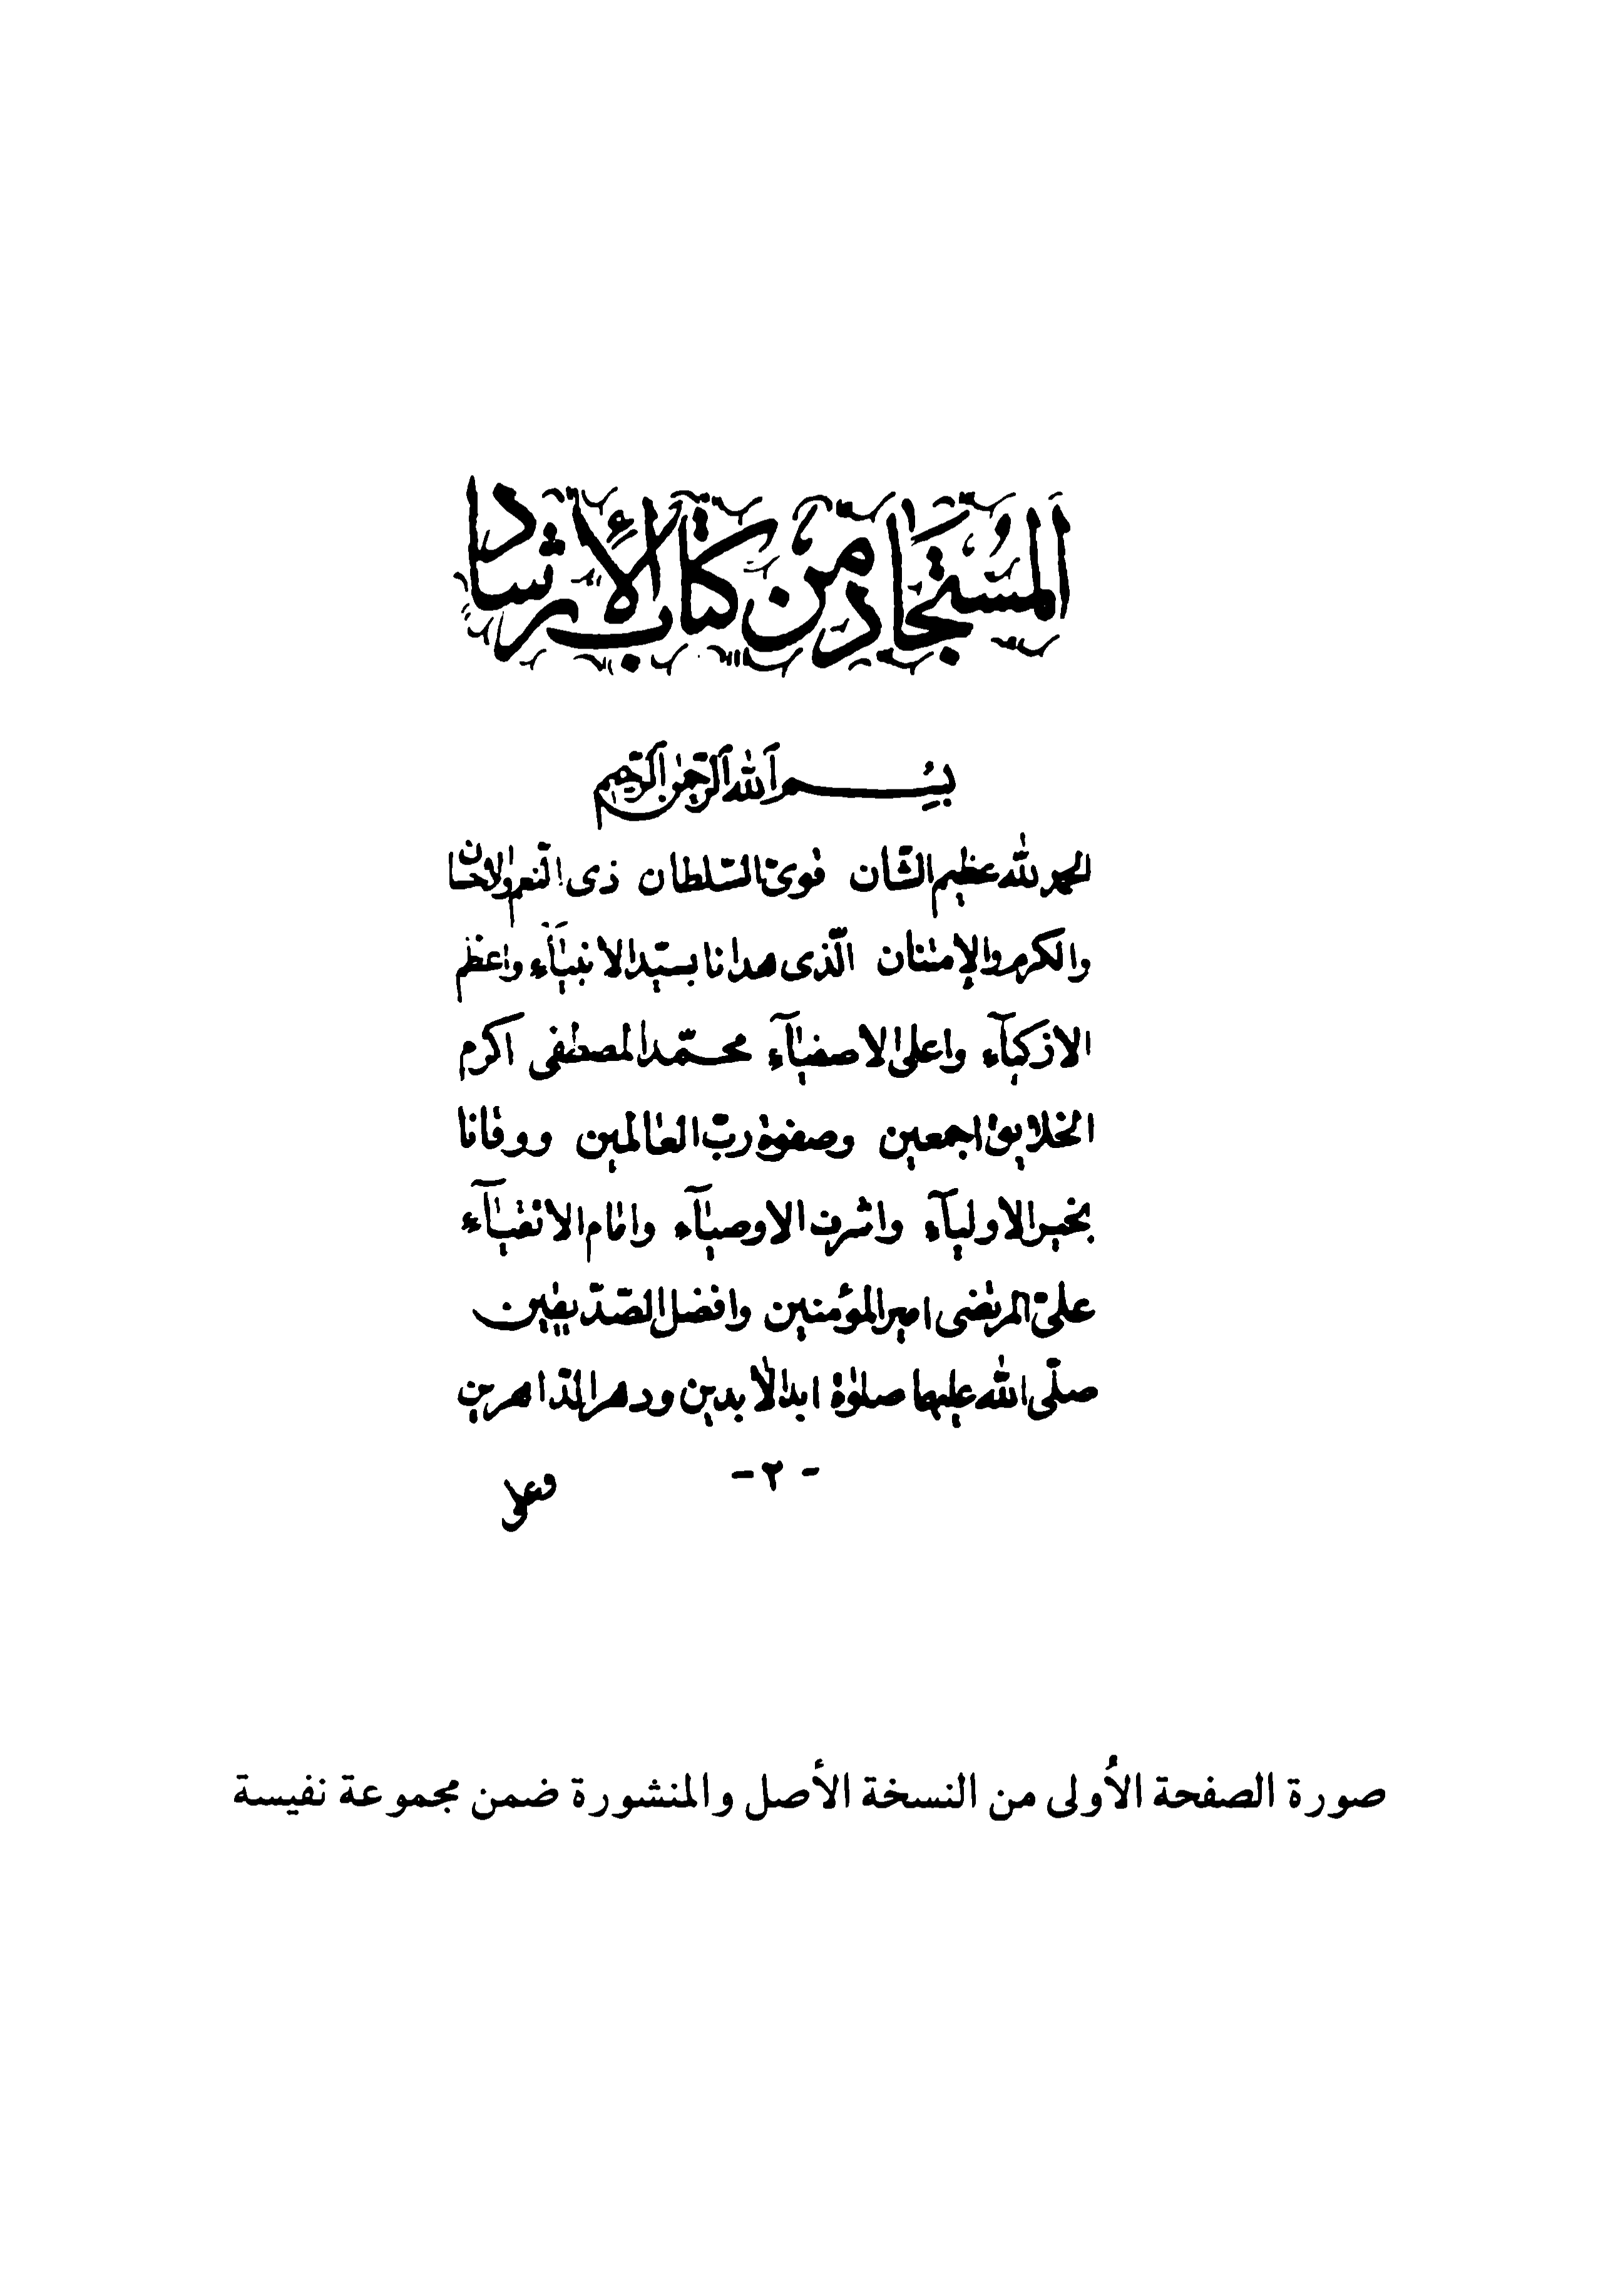 المستجاد من كتاب الإرشاد
بسم الله الرحمن الرحيم
الحمد لله عظيم الشّان قوىّ السّلطان ذى النّعم والاحسان
والكرم والإمتنان الّذى هدانا بسيّد الانبيآء واعظم
الازكيآء واعلى الاصفيآء محمّد المصطفى اكرم
الخلايق اجمعين وصفوة ربّ العالمين ووقانا
بخير الاوليآء واشرف الاوصيآء وامام الاتقيآء
علىّ المرتضى امير المؤمنين وافضل الصّدّيقين
صلّى الله عليهما صلوة ابد الأبدين ودهر الدّاهرين
- ٢ -
وعلى
صورة الصفحة الأولى من النسخة الأصل والمنشورة ضمن مجموعة نفيسة